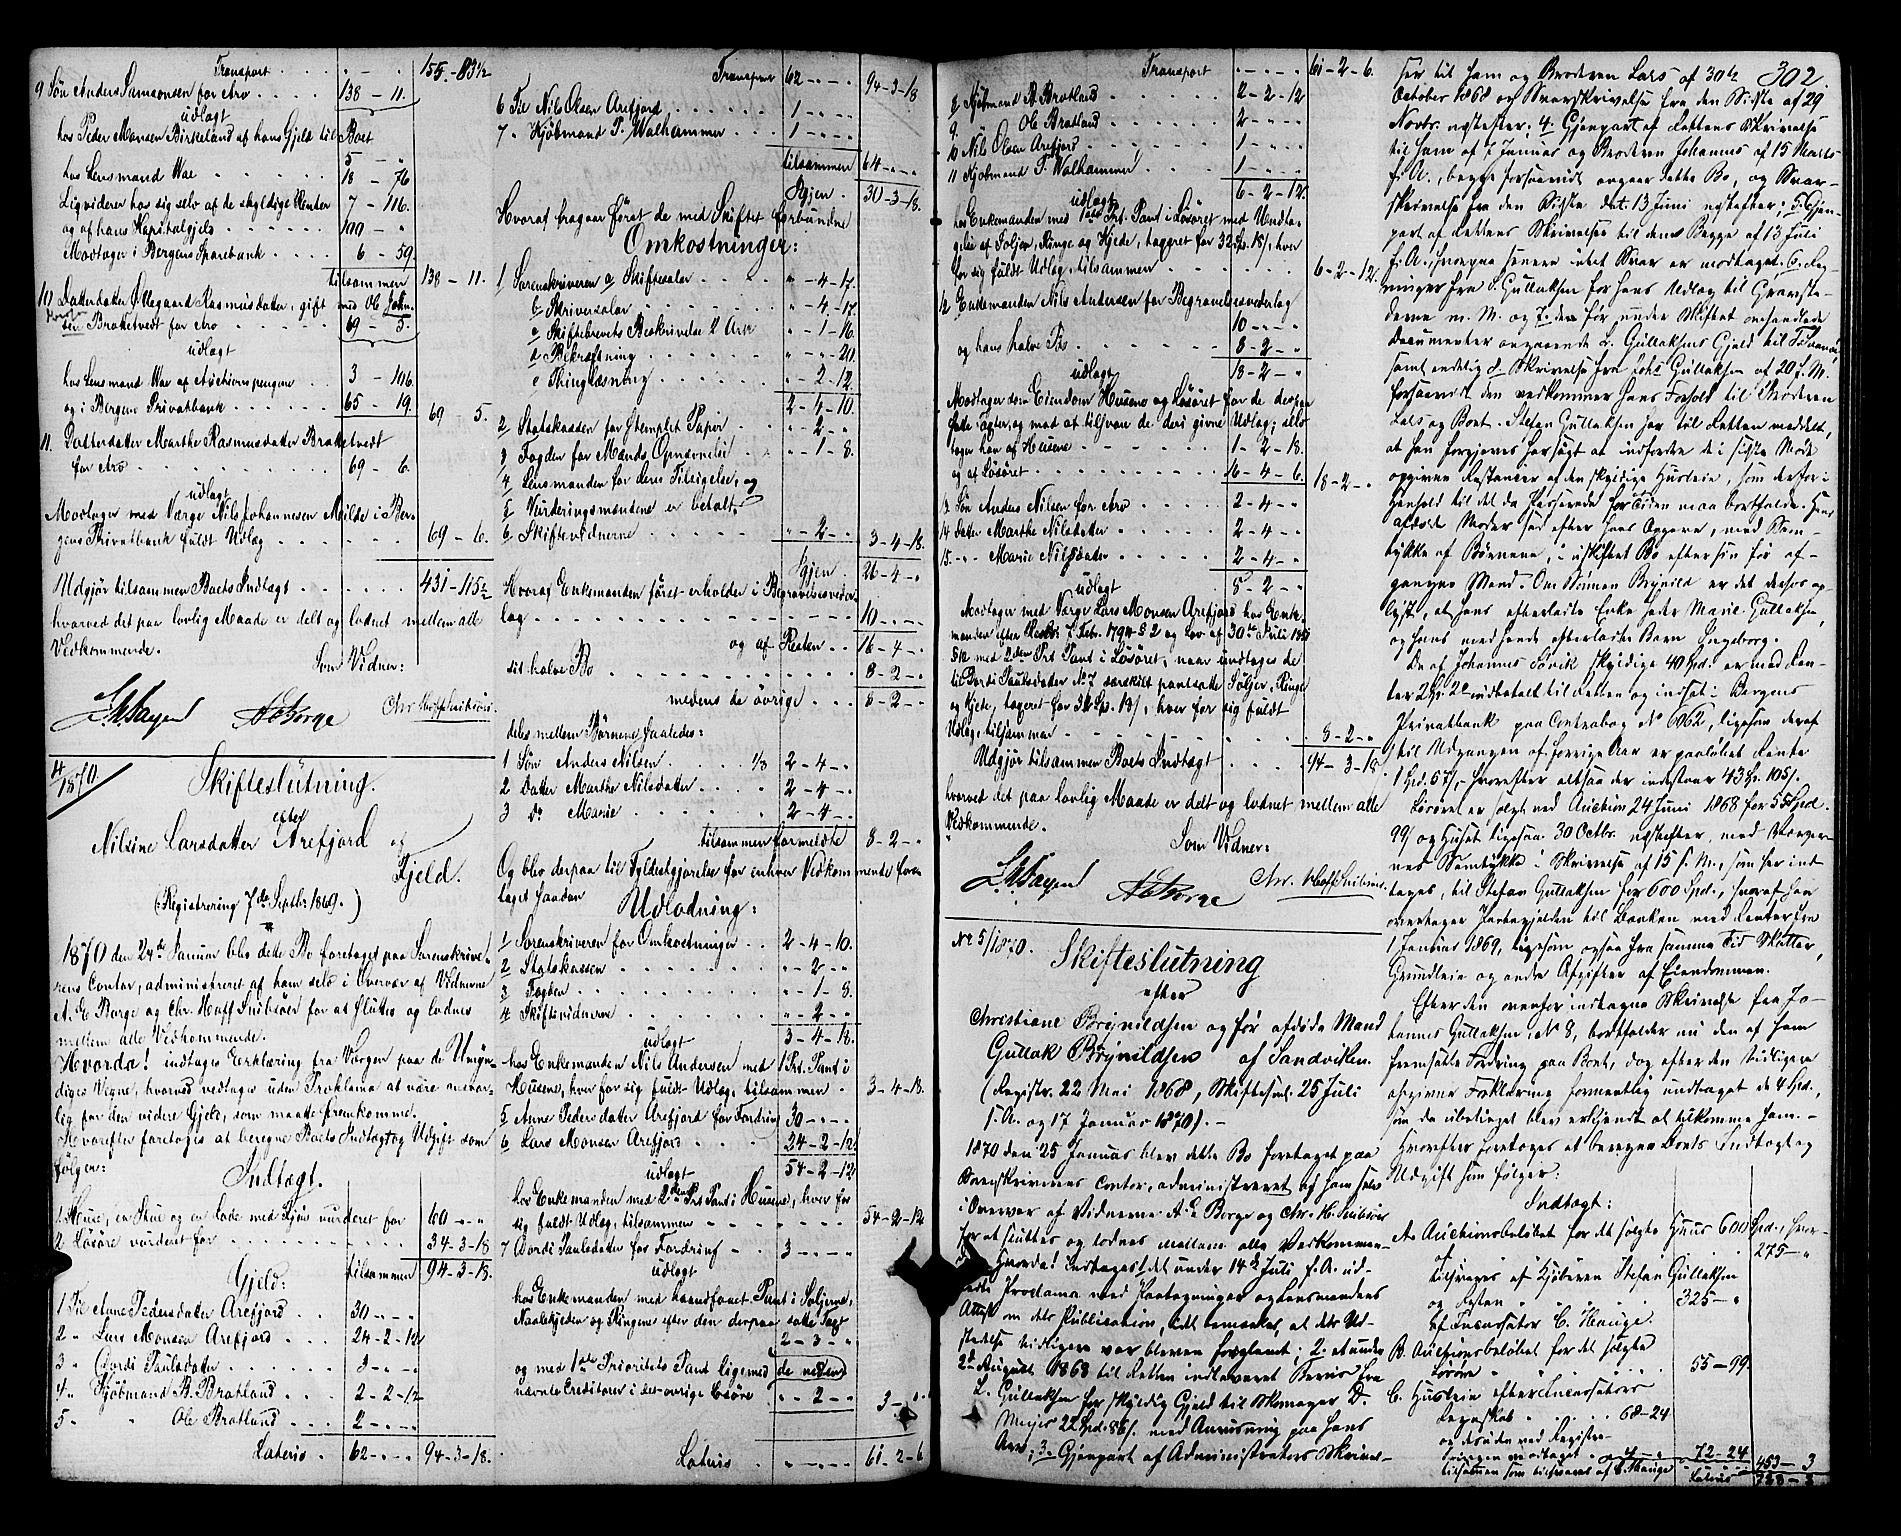 Transport . . . . - . 155.-83½
9 Søn Anders Samsonsen for Arv . . 138 - 11.
udlagt
hos Peder Monsen Birkeland af hans Gjeld til Boet
5 - "
hos Lensmand Wae . . . . . 18 - 76
Ligviderer hos sig selv af de skyldige Renter 7 - 116.
og af hans Kapitalgjeld . . . . . 100 - "
Modtager i Bergens Sparebank . . . . 6 - 59
tilsammen 138 - 11.
10) Datterdatter Øllegaard Rasmusdatter, gift med Ole John-
sen Braketvedt for Arv . . . . . 69 - 5.
udlagt
hos Lensmand Wae af Auctionspengene . . 3 - 106.
og i Bergens Privatbank . . . . . 65 - 19. 69 - 5.
11. Datterdatter Marthe Rasmusdatter Braketvedt
for Arv . . . . . . . . 69 - 6.
udlagt
Modtager med Værge Nils Johannesen Milde i Ber-
gens Privatbank fuldt Udlæg . . . . . 69 - 6.
Udgjør tilsammen Boets Indtægt . . . . . 431 - 115½
hvorved det paa lovlig Maade er delt og lodnet mellem alle
Vedkommende.
Som Vidner:
A E Borge Chr. Hoff Snibsøer.
4/1870 Skifteslutning.
efter
Nilsine Larsdatter Arefjord af
Fjeld.
(Registrering 7de Septbr. 1869.)
1870 den 24de Januar blev dette Bo foretaget paa Sorenskrive-
rens Contor, administreret af ham selv i Overvær af Vidnerne
A. E Borge og Chr. Hoff Snibsøer for at sluttes og lodnes
mellem alle Vedkommende.
Hvorda! indtages Erklæring fra Værgen paa de Umyn-
diges Vegne, hvorved vedtages uden Proklama at være ansvar-
lig for den videre Gjeld, som maatte fremkomme.
Hvorefter foretoges at beregne Boets Indtægt og Udgift som
følger:
Indtægt.
1. Huse, en Stue og en Lade med Fjøs vurderet for 60 - " - "
2 Løsøre vurderet for . . . . . 34 - 3 - 18
tilsammen 94 - 3 - 18.
Gjeld:
1 Til Anne Pedersdatter Arefjord . . . 30 - " - "
2 " Lars Monsen Arefjord . . . 24 - 2 - 12
3 " Dordi Paulsdatter . . . . . 3 - " - "
4 " Kjøbmand B. Bratland . . . 2 - 2 - 12
5 " " Ole Bratlund . . . 2 - " - "
Lateris . 62 - " - " 94 - 3 - 18.
Transport 62 - " - " 94 - 3 - 18
6 Til Nils Olsen Arefjord . . . . . 1 - " - "
7 " Kjøbmand P. Walhammer . . . 1 - " - "
tilsammen 64 - " - "
Igjen . 30 - 3 - 18.
Hvoraf fragaar først de med Skiftet forbundne
Omkostninger:
1 Sorenskriveren a Skiftesalær . . . " - 4 - 17.
b Skriversalær . . . . " - 4 - 17.
c Skiftebrevets Beskrivelse 2 Ark " - 1 - 16.
d Bekræftning . . . . . " - " - 20.
e Thinglæsning . . . . . " - 2 - 12.
2 - 4 - 10.
2 Statskassen for stemplet Papir . . " - 2 - "
3 Fogden for Mands Opnævnelse . . " - 1 - 8.
4 Lensmanden for deres Tilsigelse, og
5 Vurderingsmændene er betalt
6 Skiftevidnerne . . . . . " - 2 - " 3 - 4 - 18.
Igjen . 26 - 4 - "
Hvoraf Enkemanden først erholder i Begravelsesveder-
lag . . . . . . . . 10 - " - "
og af Resten . . 16 - 4 - "
sit halve Bo . . . . . . . 8 - 2 - "
medens de øvrige . . . 8 - 2 - "
deles mellem Børnene saaledes:
1 Søn Anders Nilsen . . . ⅓ 2 - 4 - "
2 Datter Marthe Nilsdatter . . . 2 - 4 - "
3 do Marie . . . . . 2 - 4 - "
tilsammen formeldte 8 - 2 - "
Og blev derpaa til Fyldestgjørelse for enhver Vedkommende fore-
taget saadan
Udlodning:
1 Sorenskriveren for Omkostninger . . 2 - 4 - 10.
2 Statskassen . . . . . . " - 2 - "
3 Fogden . . . . . . . " - 1 - 8.
4 Skiftevidnerne . . . . . " - 2 - "
udlagt 3 - 4 - 18.
hos Enkemanden Nils Andersen med 1 Prt. Pant i
Husene, hver for sig fuldt Udlæg, tilsammen . 3 - 4 - 18.
5 Anne Pedersdatter Arefjord for Fordring 30 - " - "
6 Lars Monsen Arefjord . . . . 24 - 2 - 12
udlagt 54 - 2 - 12
hos Enkemanden med 2den Prt Pant i Husene, hver for
sig fuldt Udlæg, tilsammen . . . . . 54 - 2 - 12
7 Dordi Paulsdatter for Fordring . . 3 - " - "
udlagt
hos Enkemanden med haandfaaet Pant i Søljerne,
Naalekjeden og Ringene efter den derpaa satte Taxt
2 - 3 - "
og med 1ste Prioritets Pant ligemed de neden-
nævnte Creditorer i det øvrige Løsøre " - 2 - " 3 - " - "
Lateris . " - " - " 61 - 2 - 6
Transport . - " - " 61 - 2 - 6.
8 Kjøbmand B. Bratland . . . . 2 - 2 - 12
9. " Ole Bratland . . . . 2 - " - "
10 Nils Olsen Arefjord . . . . . 1 - " - "
11 Kjøbmand P. Walhammer . . . 1 - " - "
udlagt 6 - 2 - 12.
hos Enkemanden med 1ste Prt. Pant i Løsøret med Undta-
gelse af Søljer, Ringe og Kjede, taxeret for 32 Sp. 18 ß, hver
for sig fuldt Udlæg, tilsammen . . . . . 6 - 2 - 12.
12 Enkemanden Nils Andersen for Begravelsesvederlag
10 - " - "
og hans halve Bo . . . . . 8 - 2 - "
udlagt 18 - 2 - "
Modtager som Eiendom Husene og Løsøret for de derpaa
satte Taxter, og mod at tilsvare de deri givne Udlæg; selv
tager han af Husene . . . . . 1 - 2 - 18.
og af Løsøret . . . . . . 16 - 4 - 6. 18 - 2 - "
13. Søn Anders Nilsen for Arv . . . 2 - 4 - "
14 Datter Marthe Nilsdatter . . . 2 - 4 - "
15. " Marie Nilsdatter . . . . 2 - 4 - "
udlagt 8 - 2 - "
Modtager med Værge Lars Monsen Arefjord hos Enke-
manden efter Reskr. 7 Febr. 1794 § 2 og Lov af 30te Juli 1851
§ 12 med 2den Prt Pant i Løsøret, naar undtages de
til Dordi Paulsdatter No 7 særskilt pantsatte Søljer, Ringe
og Kjede, taxeret for 32 Sp. 18 ß, hver for sig fuldt
Udlæg, tilsammen . . . . . . . 8 - 2 - "
Udgjør tilsammen Boets Indtægt . . . . 94 - 3 - 18.
hvorved det paa lovlig Maade er delt og lodnet mellem alle
Vedkommende.
Som Vidner:
A E Borge Chr. Hoff Snibsøer.
No 5/1870. Skifteslutning
efter
Christiane Brynildsen og før afdøde Mand
Gullak Brynildsen af Sandviken.
(Registr. 22 Mai 1868, Skiftesml. 25 Juli
s. A. og 17 Januar 1870). -
1870 den 25 Januar blev dette Bo foretaget paa
Sorenskriverens Contor, administreret af ham selv
i Overvær af Vidnerne A. E Borge og Chr. H. Snibsøer
for at sluttes og lodnes mellem alle Vedkommen-
de. Hvorda! indtages 1 det under 14de Juli f. A. ud-
stedte Proclama med Paategninger og Lensmandens
Attest om dets Publication, idet bemærkes, at dets Ud-
stedelse tidligere var bleven forglemt; 2. et under
2de August 1868 til Retten indleveret Bevis fra
L. Gullaksen for skyldig Gjeld til Skomager D.
Meyer 22 Spd. 86 ß. med Anvisning paa hans
Arv; 3. Gjenpart af Administrators Skrivel-
302.
ser til ham og Broderen Lars af 30te
October 1868 og Svarskrivelse fra den Sidste af 29
Novbr. næstefter; 4. Gjenpart af Rettens Skrivelse
til ham af 7 Januar og Broderen Johannes af 15 Marts
f. A., begge forsaavidt angaar dette Bo, og Svar-
skrivelse fra den Sidste dat. 13 Juni næstefter; 5. Gjen-
part af Rettens Skrivelse til dem Begge af 13 Juli
f. A., hvorpaa senere intet Svar er modtaget; 6. Reg-
ninger fra S. Gullaksen for hans Udlæg til Gravste-
derne m. M. og 7. de før under Skiftet omhandlede
Documenter angaaende L. Gullaksens Gjeld til
samt endelig 8 Skrivelse fra Johs Gullaksen af 20 f. M.
forsaavidt den vedkommer hans Forhold til Broderen
Lars og Boet. Stefan Gullaksen har til Retten meddelt,
at han forgjæves har søgt at indfordre de i sidste Møde
opgivne Restancer af den skyldige Husleie, som derfor i
Henhold til det da Passerede for Tiden maa bortfalde. Hans
afdøde Moder sad efter hans Opgave, med Sam-
tykke af Børnene, i uskiftet Bo efter sin før af-
gangne Mand. Om Sønnen Brynild er det derhos op-
lyst, at hans efterladte Enke heder Marie Gullaksen,
og hans med hende efterladte Barn Ingeborg.
De af Johannes Søvik skyldige 40 Spd. er med Ren-
ter 2 Sp. 2 ß indbetalt til Retten og indsat i Bergens
Privatbank paa Contrabog No 6062, ligesom deraf
til Udgangen af forrige Aar er paaløbet Rente
1 Spd. 57 ß, hvorefter altsaa der indestaar 43 Sp. 105 ß.
Løsøret er solgt ved Auction 24 Juni 1868 for 55 Spd.
99 ß og Huset ligesaa 30 Octbr. næstefter, med Værger-
nes Samtykke i Skrivelse af 15 s. M., som her ind-
tages, til Stefan Gullaksen for 600 Spd., hvoraf han
overtager Pantegjelden til Banken med Renter fra
1 Januar 1869, ligesom ogsaa fra samme Tid Skatter,
Grundleie og andre Afgifter af Eiendommen.
Efter den ovenfor indtagne Skrivelse fra Jo-
hannes Gullaksen No 8, bortfalder nu den af ham
fremsatte Fordring paa Boet, dog efter den tidligere
afgivne Forklaring formentlig undtaget de 4 Spd.,
som da ubetinget blev erkjendt at tilkomme ham. -
Hvorefter foretoges at beregne Boets Indtægt og
Udgift som følger:
Indtægt:
A. Auctionsbeløbet for det solgte Huus 600 Spd., hvor-
af 275 - "
tilsvares af Kjøberen Stefan Gullaksen
og Resten . . . . . 325 - "
af Incassator C. Hauge.
B. Auctionsbeløbet for det solgte
Løsøre . . . . . . 55 - 99.
C. Husleie efter Incassators
Regnskab . . . . 68 - 24
og desuden ved Registre-
ringen modtaget . 4 - " 72 - 24
tilsammen som tilsvares af C. Hauge 453 - 3
Lateris 728 - 3